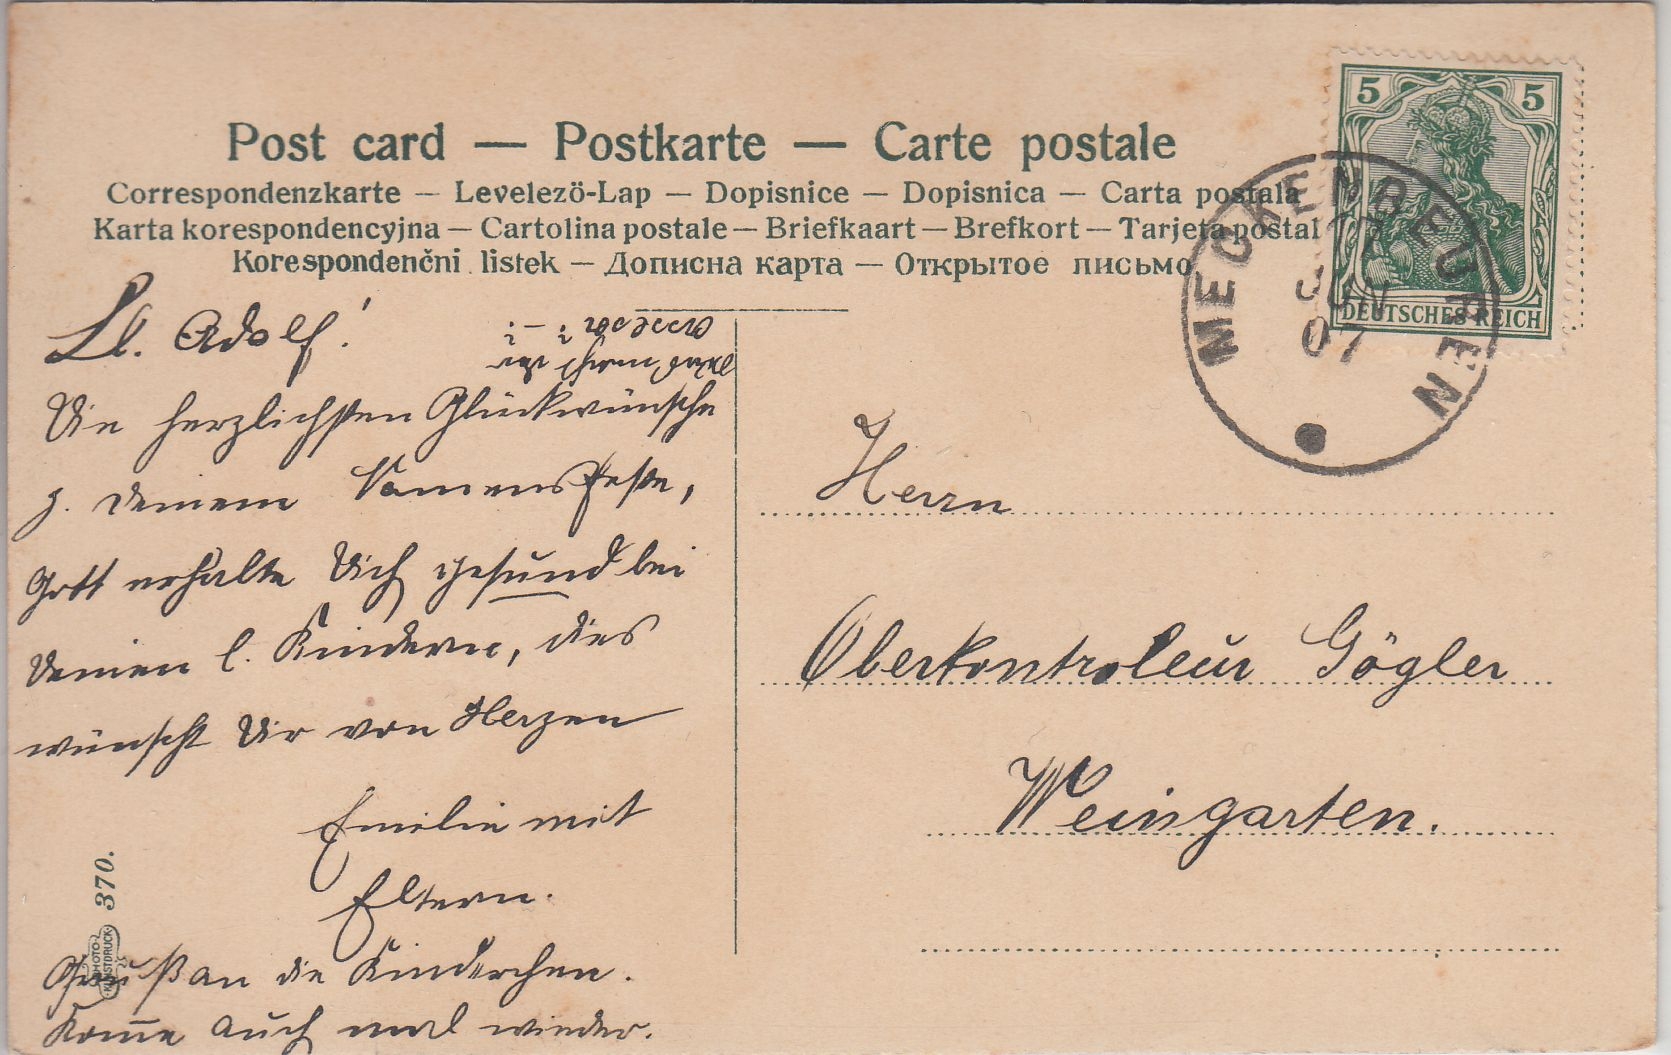 Post card — Postkarte — Carte postale
Correspondenzkarte — Levelezö-Lap — Dopisnice — Dopisnica — Carta postala
Karta korespondencyjna — Cartolina postale — Briefkaart — Brefkort — Tarjeta postal
Korespondenčni listek — Дописна карта — Открытое письмо
5 5
DEUTSCHES REICH
MECKENBEUREN
17
JUN
07
Lb. Adolf!
Die herzlichsten Glückwünsche
z. deinem Namensfeste,
Gott erhalte Dich gesund bei
Deinen l. Kindern, dies
wünscht Dir von Herzen
Emilie mit
Eltern.
Gruß an die Kinderchen.
Kome auch mal wieder.
Herrn
Oberkontroleur Gögler
Weingarten.
370.
PHOTO-
KUNSTDRUCK